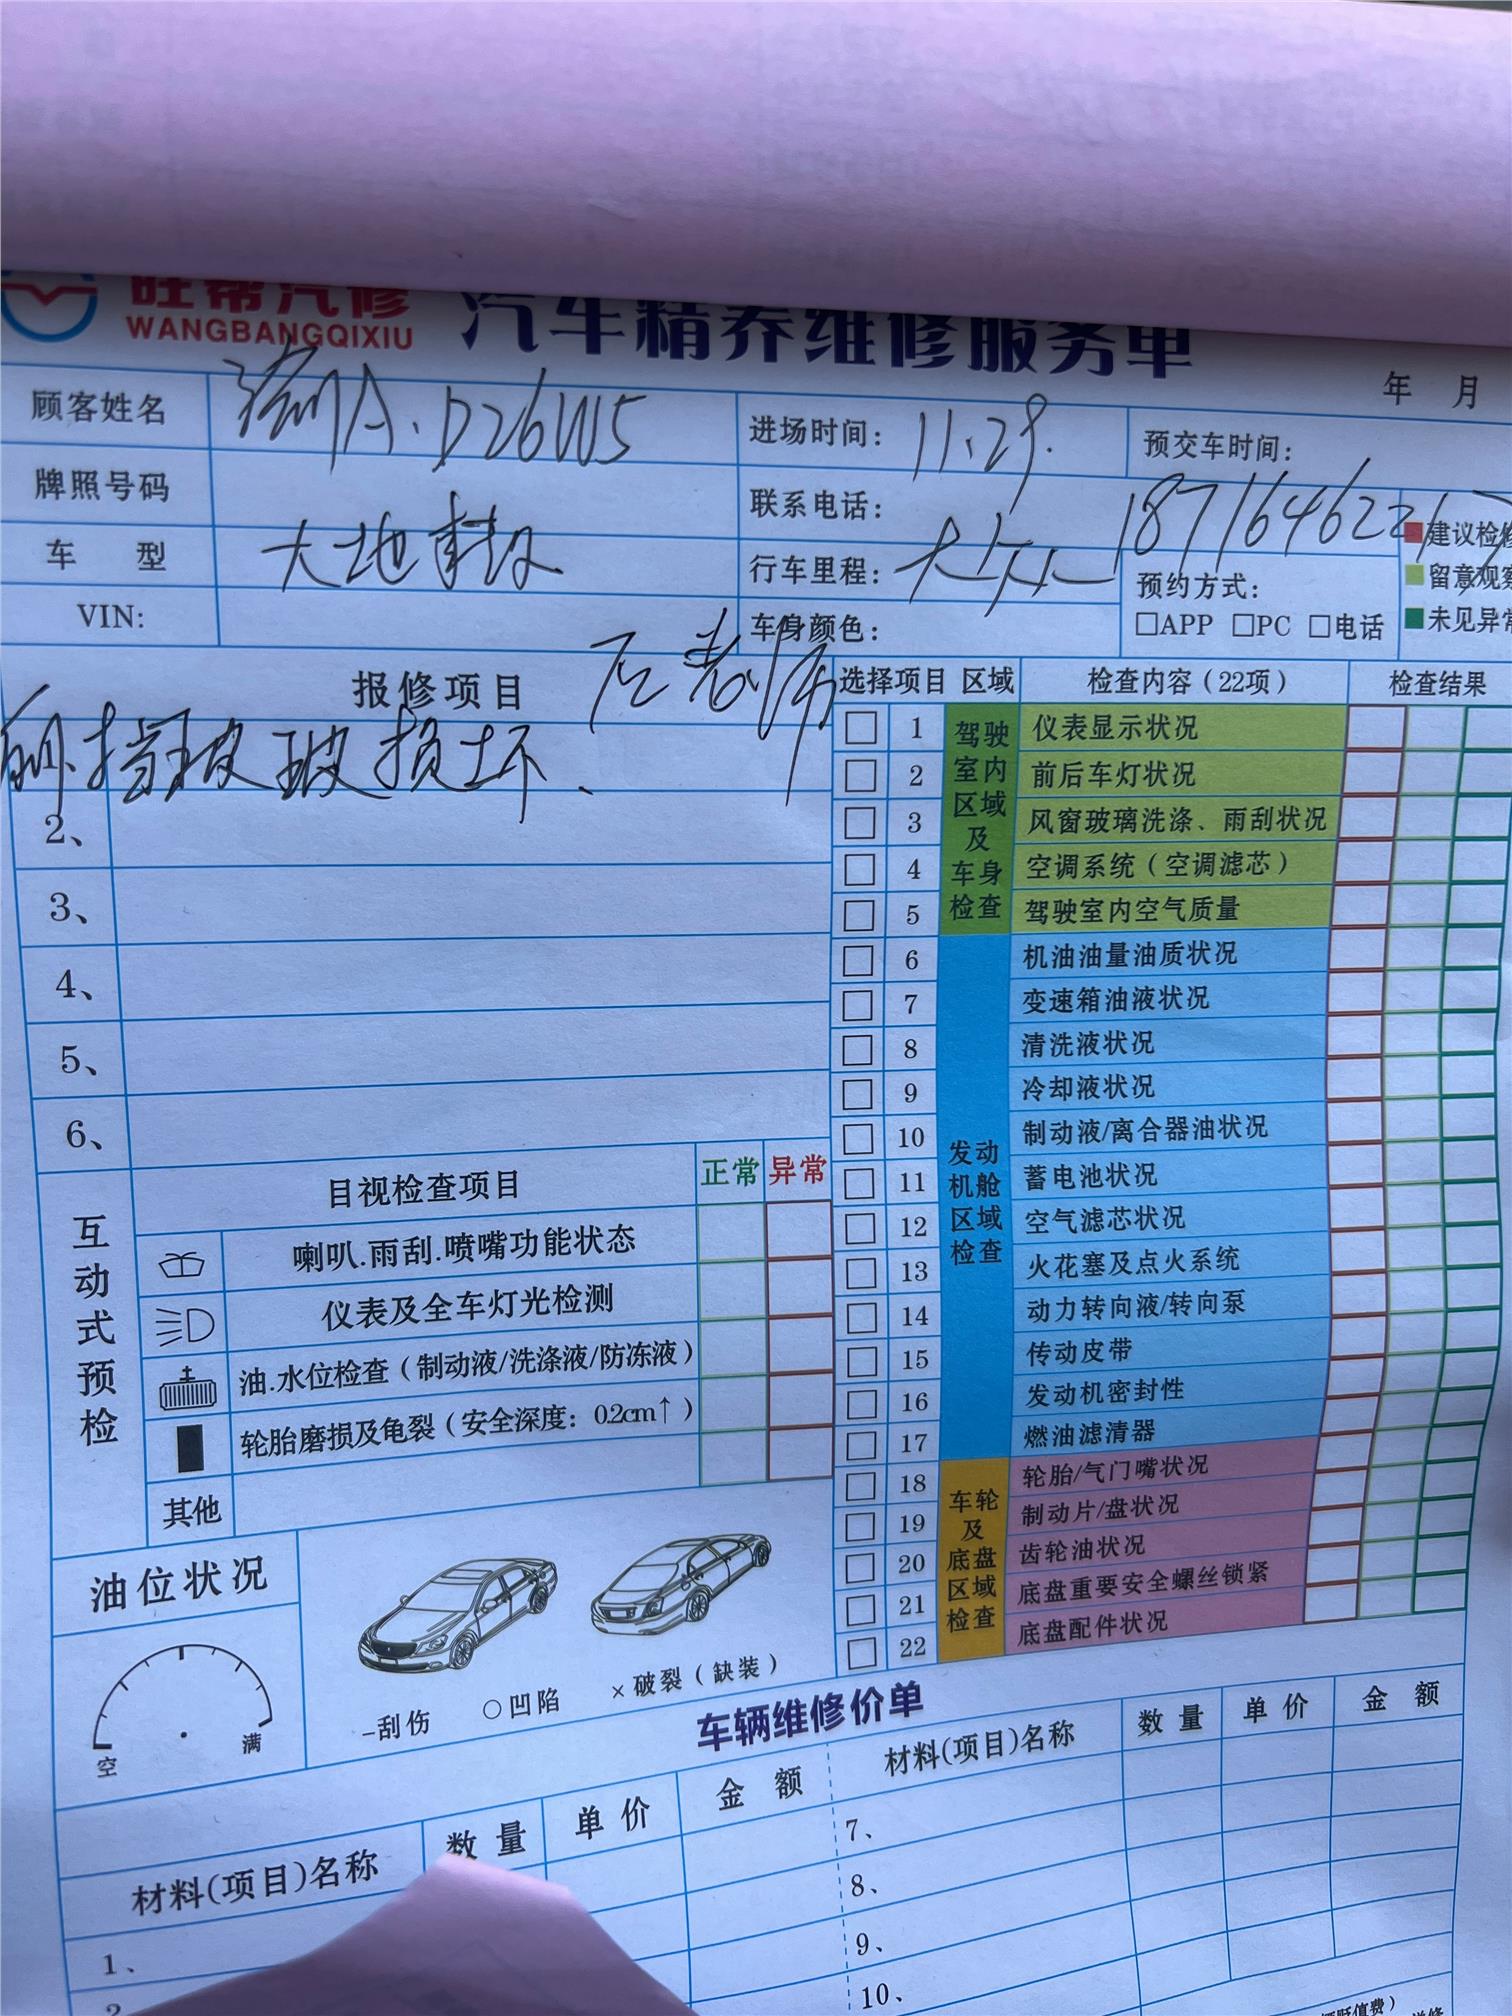 旺帮汽修
WANGBANGQIXIU
汽车精养维修服务单
年 月
顾客姓名
A·D26W5
进场时间: 11.29.
预交车时间:
牌照号码
联系电话:
车 型
大地
行车里程:
预约方式:
□APP □PC □电话
建议检修
留意观察
未见异常
VIN:
车身颜色:
报修项目
左老师
前挡玻玻损坏.
2、
3、
4、
5、
6、
选择项目 区域 检查内容（22项） 检查结果
驾驶室内区域及车身检查
1 仪表显示状况
2 前后车灯状况
3 风窗玻璃洗涤、雨刮状况
4 空调系统（空调滤芯）
5 驾驶室内空气质量
发动机舱区域检查
6 机油油量油质状况
7 变速箱油液状况
8 清洗液状况
9 冷却液状况
10 制动液/离合器油状况
11 蓄电池状况
12 空气滤芯状况
13 火花塞及点火系统
14 动力转向液/转向泵
15 传动皮带
16 发动机密封性
17 燃油滤清器
车轮及底盘区域检查
18 轮胎/气门嘴状况
19 制动片/盘状况
20 齿轮油状况
21 底盘重要安全螺丝锁紧
22 底盘配件状况
互动式预检
目视检查项目 正常 异常
喇叭.雨刮.喷嘴功能状态
仪表及全车灯光检测
油.水位检查（制动液/洗涤液/防冻液）
轮胎磨损及龟裂（安全深度：0.2cm↑）
其他
油位状况
空 满
–刮伤 ○凹陷 ×破裂（缺装）
车辆维修价单
材料(项目)名称 数量 单价 金额
材料(项目)名称 数量 单价 金额
1、
2
7、
8、
9、
10、